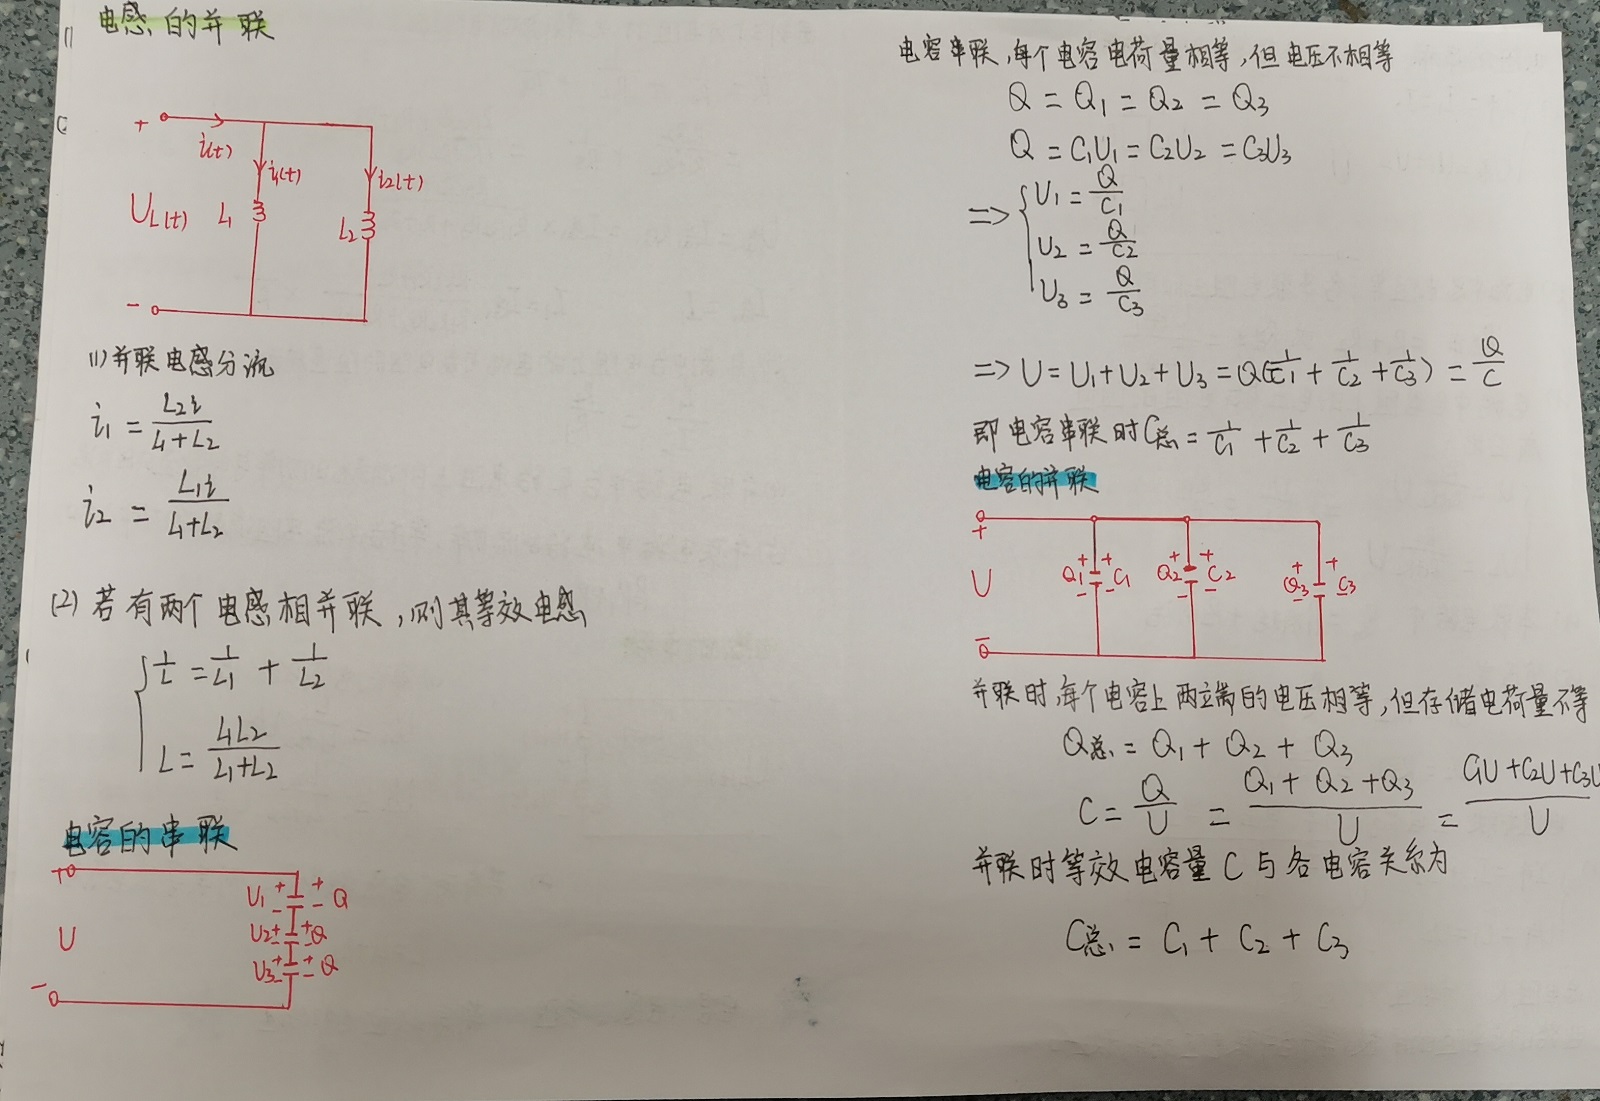 电感的并联
+
i(t)
i₁(t)
i₂(t)
U_L(t)
L₁
L₂
-
(1) 并联电感分流
i₁ = L₂i / (L₁+L₂)
i₂ = L₁i / (L₁+L₂)
(2) 若有两个电感相并联,则其等效电感
1/L = 1/L₁ + 1/L₂
L = L₁L₂ / (L₁+L₂)
电容的串联
+
U₁ + - + - Q
U
U₂ + - + - Q
U₃ + - + - Q
-
电容串联,每个电容电荷量相等,但电压不相等
Q = Q₁ = Q₂ = Q₃
Q = C₁U₁ = C₂U₂ = C₃U₃
=> U₁ = Q/C₁
U₂ = Q/C₂
U₃ = Q/C₃
=> U = U₁+U₂+U₃ = Q(1/C₁ + 1/C₂ + 1/C₃) = Q/C
即电容串联时C总 = 1/C₁ + 1/C₂ + 1/C₃
电容的并联
+
U
Q₁ + - + - C₁
Q₂ + - + - C₂
Q₃ + - + - C₃
-
并联时,每个电容上两端的电压相等,但存储电荷量不等
Q总 = Q₁ + Q₂ + Q₃
C = Q/U = (Q₁ + Q₂ + Q₃)/U = (C₁U + C₂U + C₃U)/U
并联时等效电容量C与各电容关系为
C总 = C₁ + C₂ + C₃